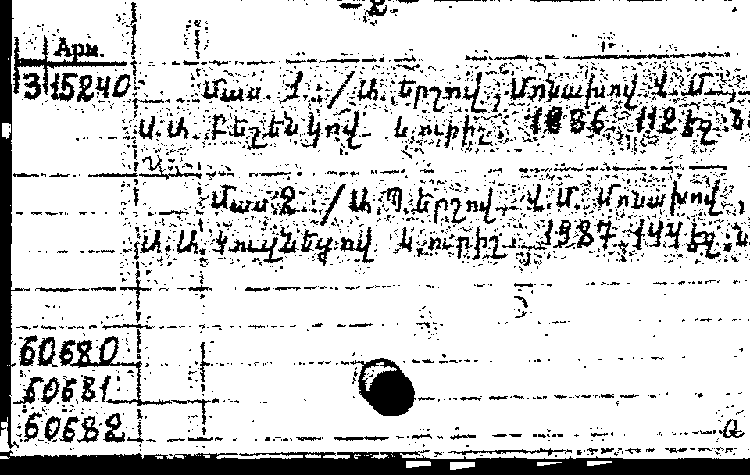 - 2 -
Арм.
315240 Մաս. 1. : / Ա. Երշով, Մոնախով Վ. Մ.,
Ա. Ա. Բեշենկով և ուրիշ. 1986 112 էջ :
Մաս. 2. / Ա. Պ. Երշով, Վ. Մ. Մոնախով,
Ա. Ա. Կուզնեցով և ուրիշ 1987 144 էջ :
60680
60681
60682